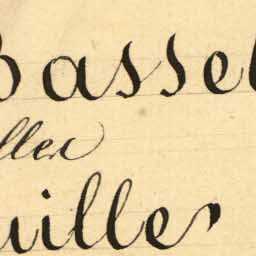 Bassel
llen
uiller